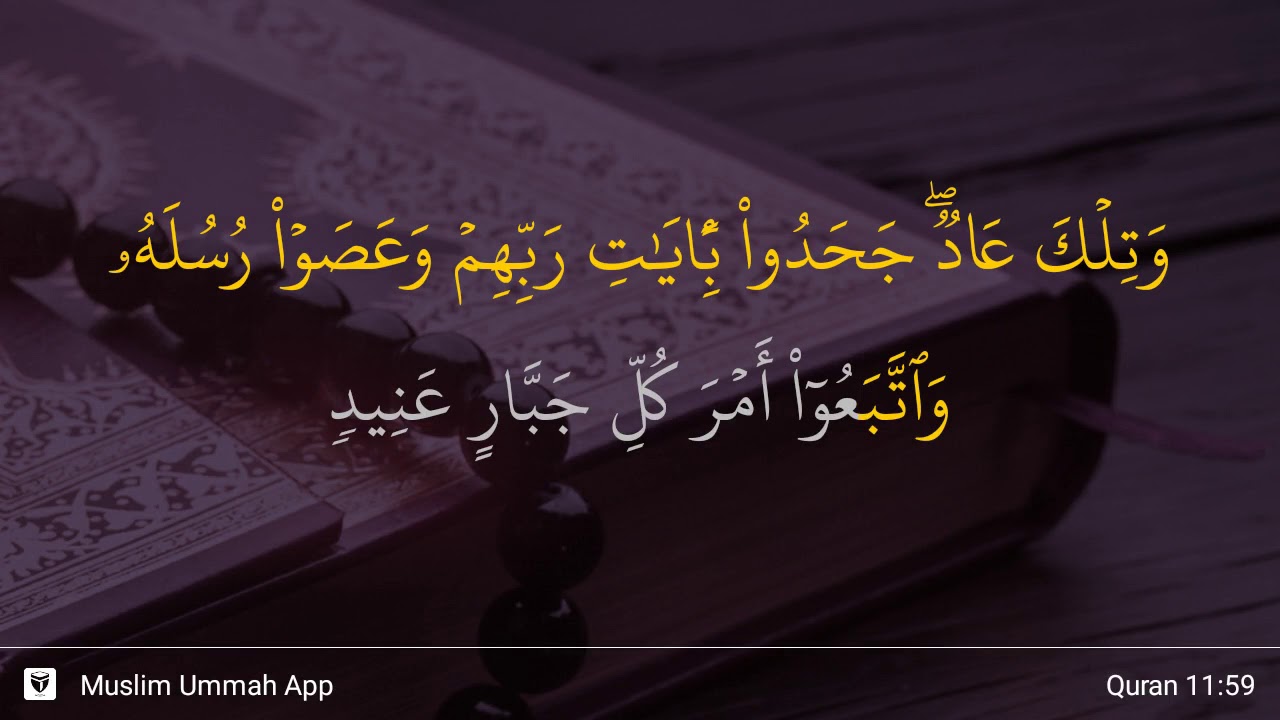 وَتِلْكَ عَادٌۖ جَحَدُوا۟ بِـَٔايَـٰتِ رَبِّهِمْ وَعَصَوْا۟ رُسُلَهُۥ
وَٱتَّبَعُوٓا۟ أَمْرَ كُلِّ جَبَّارٍ عَنِيدٍ
Muslim Ummah App
Quran 11:59